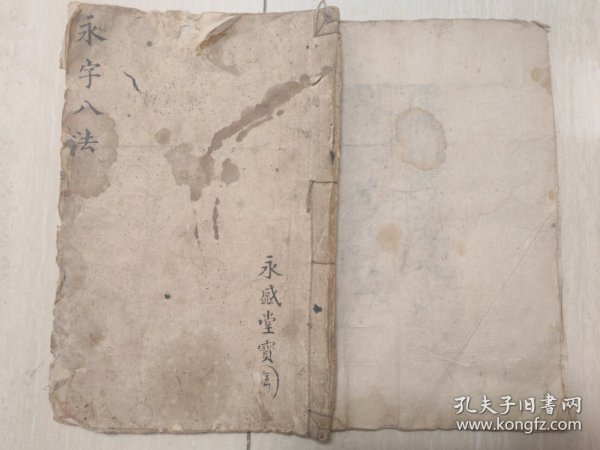 永字八法
永盛堂寳
孔夫子旧书网
www.kongfz.com